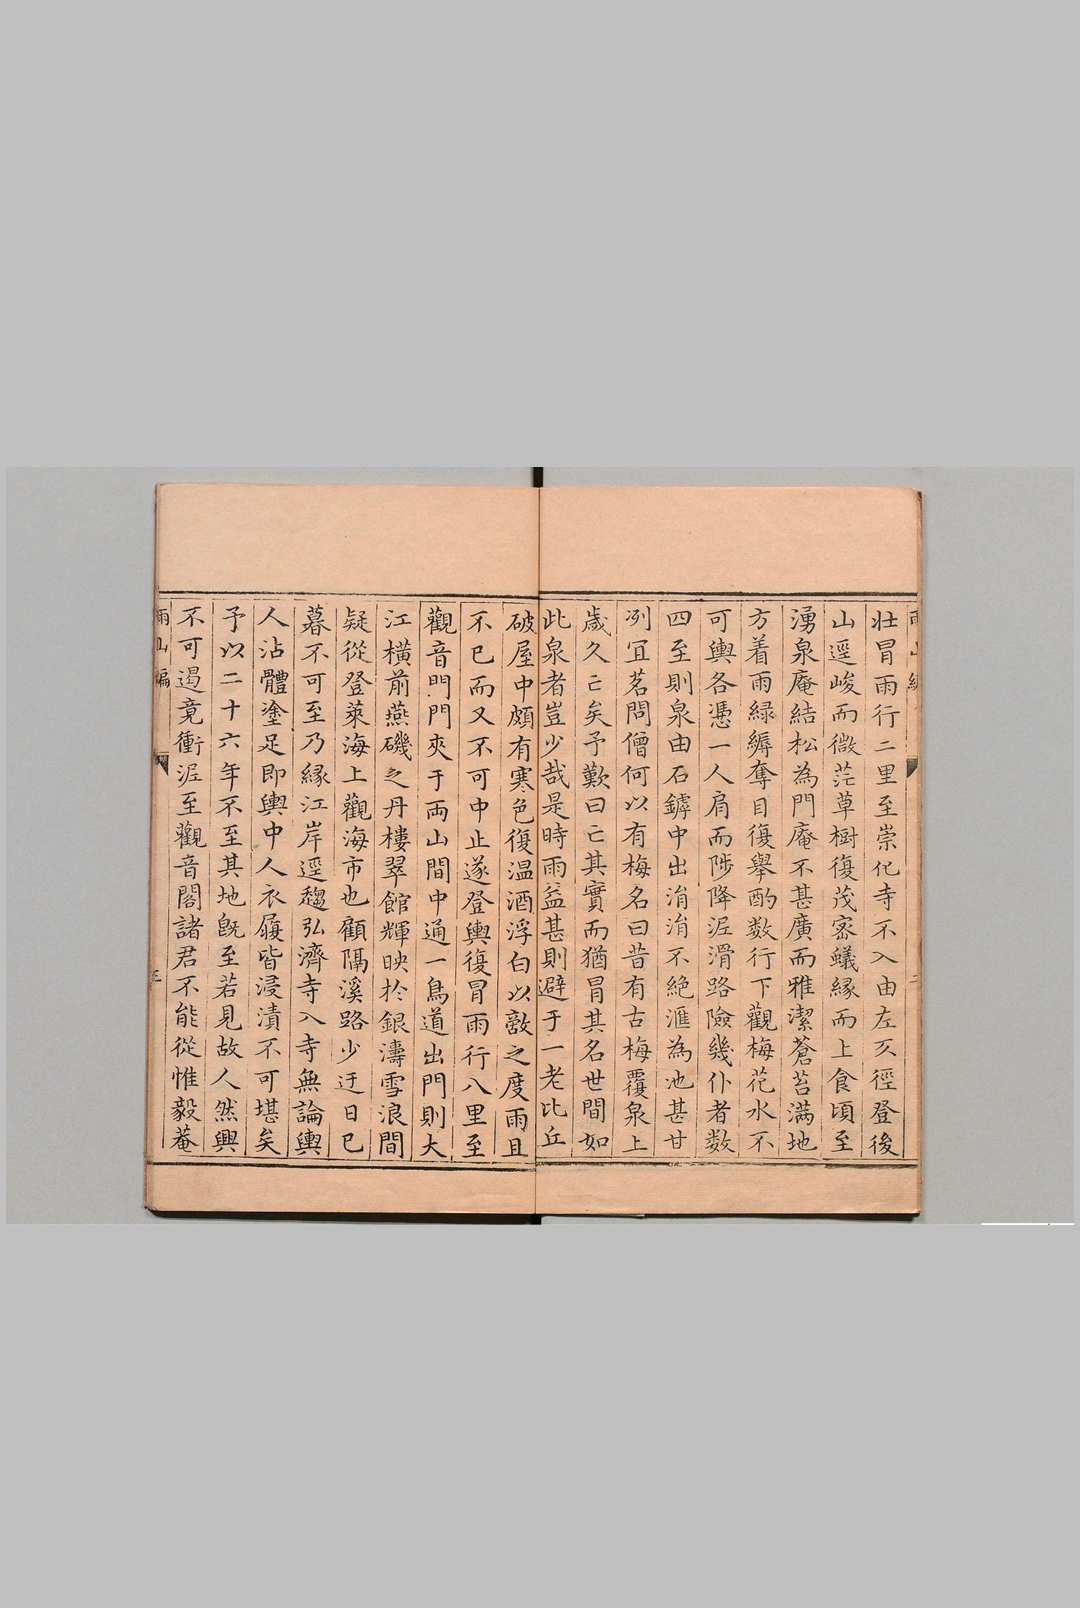 壯冒雨行二里至崇化寺不入由左又徑登後
山逕峻而微茫草樹復茂宻蟻縁而上食頃至
湧泉庵結松為門庵不甚廣而雅潔蒼苔滿地
方着雨緑縟奪目復舉酌数行下觀梅花水不
可輿各憑一人肩而陟降泥滑路險幾仆者数
四至則泉由石罅中出涓涓不絶滙為池甚甘
冽冝茗問僧何以有梅名曰昔有古梅覆泉上
歳久亡矣予歎曰亡其實而猶冒其名世間如
此泉者豈少哉是時雨益甚則避于一老比丘
破屋中頗有寒色復温酒浮白以敵之度雨且
不已而又不可中止遂登輿復冒雨行八里至
觀音門門夾于両山間中通一鳥道出門則大
江橫前燕磯之丹樓翠館輝映於銀濤雪浪間
疑從登萊海上觀海市也顧隔溪路少迂日已
暮不可至乃縁江岸逕趨弘濟寺入寺無論輿
人沾體塗足即輿中人衣履皆浸漬不可堪矣
予以二十六年不至其地旣至若見故人然興
不可遏竟衝泥至觀音閣諸君不能從惟毅菴
雨山編
三